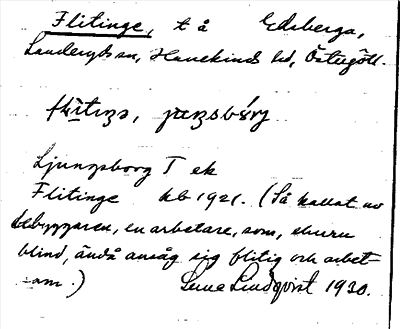 Flitinge, t å Edeberga,
Landeryds sn, Hanekinds hd, Östergötl.
flitiŋə, juŋsbórj
Ljungsborg T ek
Flitinge kb 1921. (Så kallat av
bebyggaren, en arbetare, som, ehuru
blind, ändå ansåg sig flitig och arbet-
sam.) Sune Lindqvist 1930.